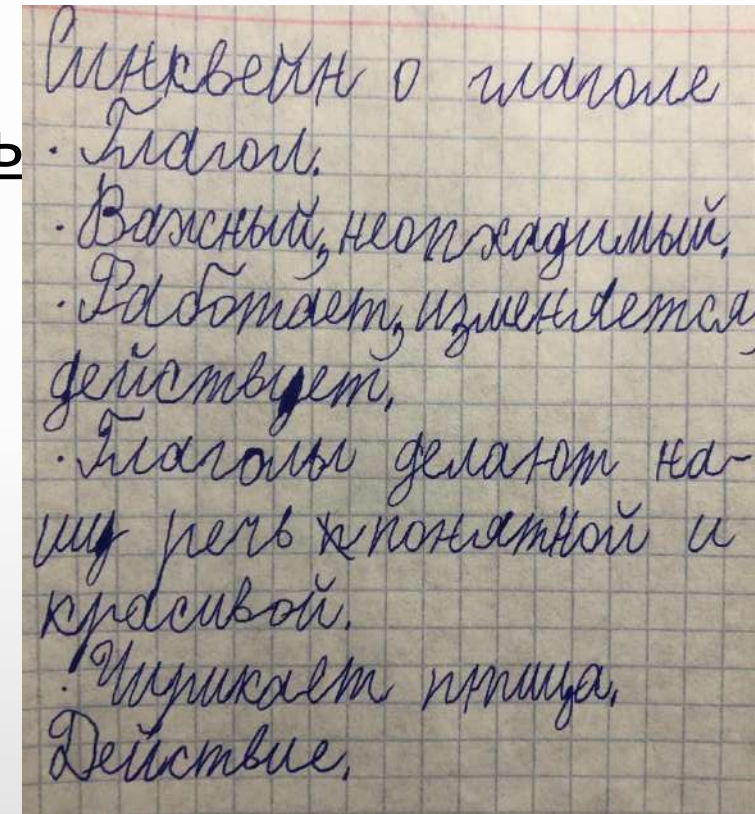 Синквейн о глаголе
ь
· Глагол.
· Важный, неопхадимый.
· Работает, изменяется,
действует.
· Глаголы делают на-
шу речь понятной и
красивой.
· Чирикает птица.
Действие.